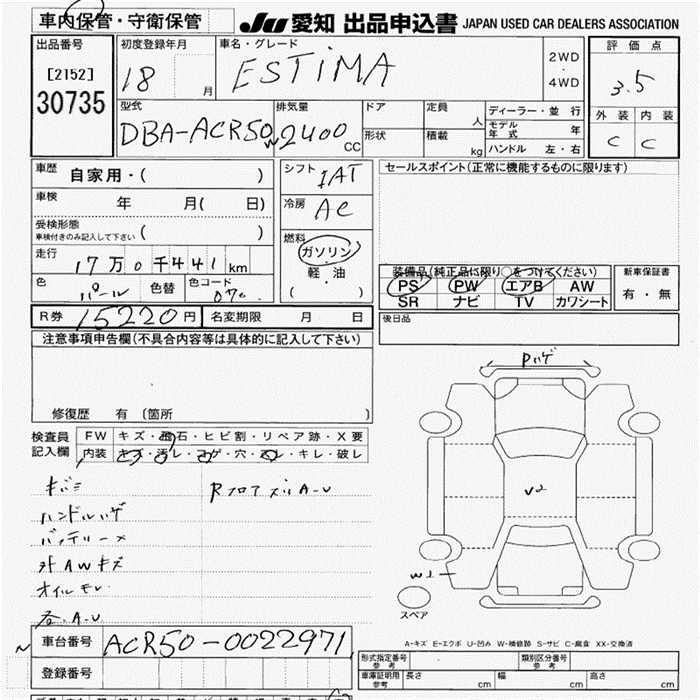 車内保管・守衛保管
JU 愛知 出品申込書 JAPAN USED CAR DEALERS ASSOCIATION
出品番号
[2152]
30735
初度登録年月
18 月
車名・グレード
ESTiMA
2WD
・
4WD
評価点
3.5
外装 内装
C C
型式
DBA-ACR50W
排気量
2400 CC
ドア
形状
定員 人
積載 kg
ディーラー・並行
モデル年式 年
ハンドル 左・右
車歴 自家用・( )
車検 年 月( 日)
受検形態
車検付きのみ記入して下さい ( )
走行 17万0千441km
色 パール 色替 色コード 070
シフト IAT
冷房 AC
燃料
ガソリン
軽・油
( )
セールスポイント(正常に機能するものに限ります)
装備品(純正品に限り○をつけてください)
PS PW エアB AW
SR ナビ TV カワシート
新車保証書
有・無
R券 15220円 名変期限 月 日
後日品
注意事項申告欄(不具合内容等は具体的に記入して下さい)
修復歴 有 (箇所 )
検査員
記入欄
FW キズ・飛石・ヒビ割・リペア跡・X要
内装 キズ・汚レ・コゲ・穴・スレ・キレ・破レ
キバミ
RフロアズレA-U
ハンドルハゲ
バッテリー×
外AWキズ
オイルモレ
各A-U
Pハゲ
U2
W1
スペア
A-キズ E-エクボ U-凹み W-補修跡 S-サビ C-腐食 XX-交換済
車台番号 ACR50-0022971
登録番号
形式指定番号
参考
類別区分番号
参考
車庫証明用
参考
長さ cm 幅 cm 高さ cm